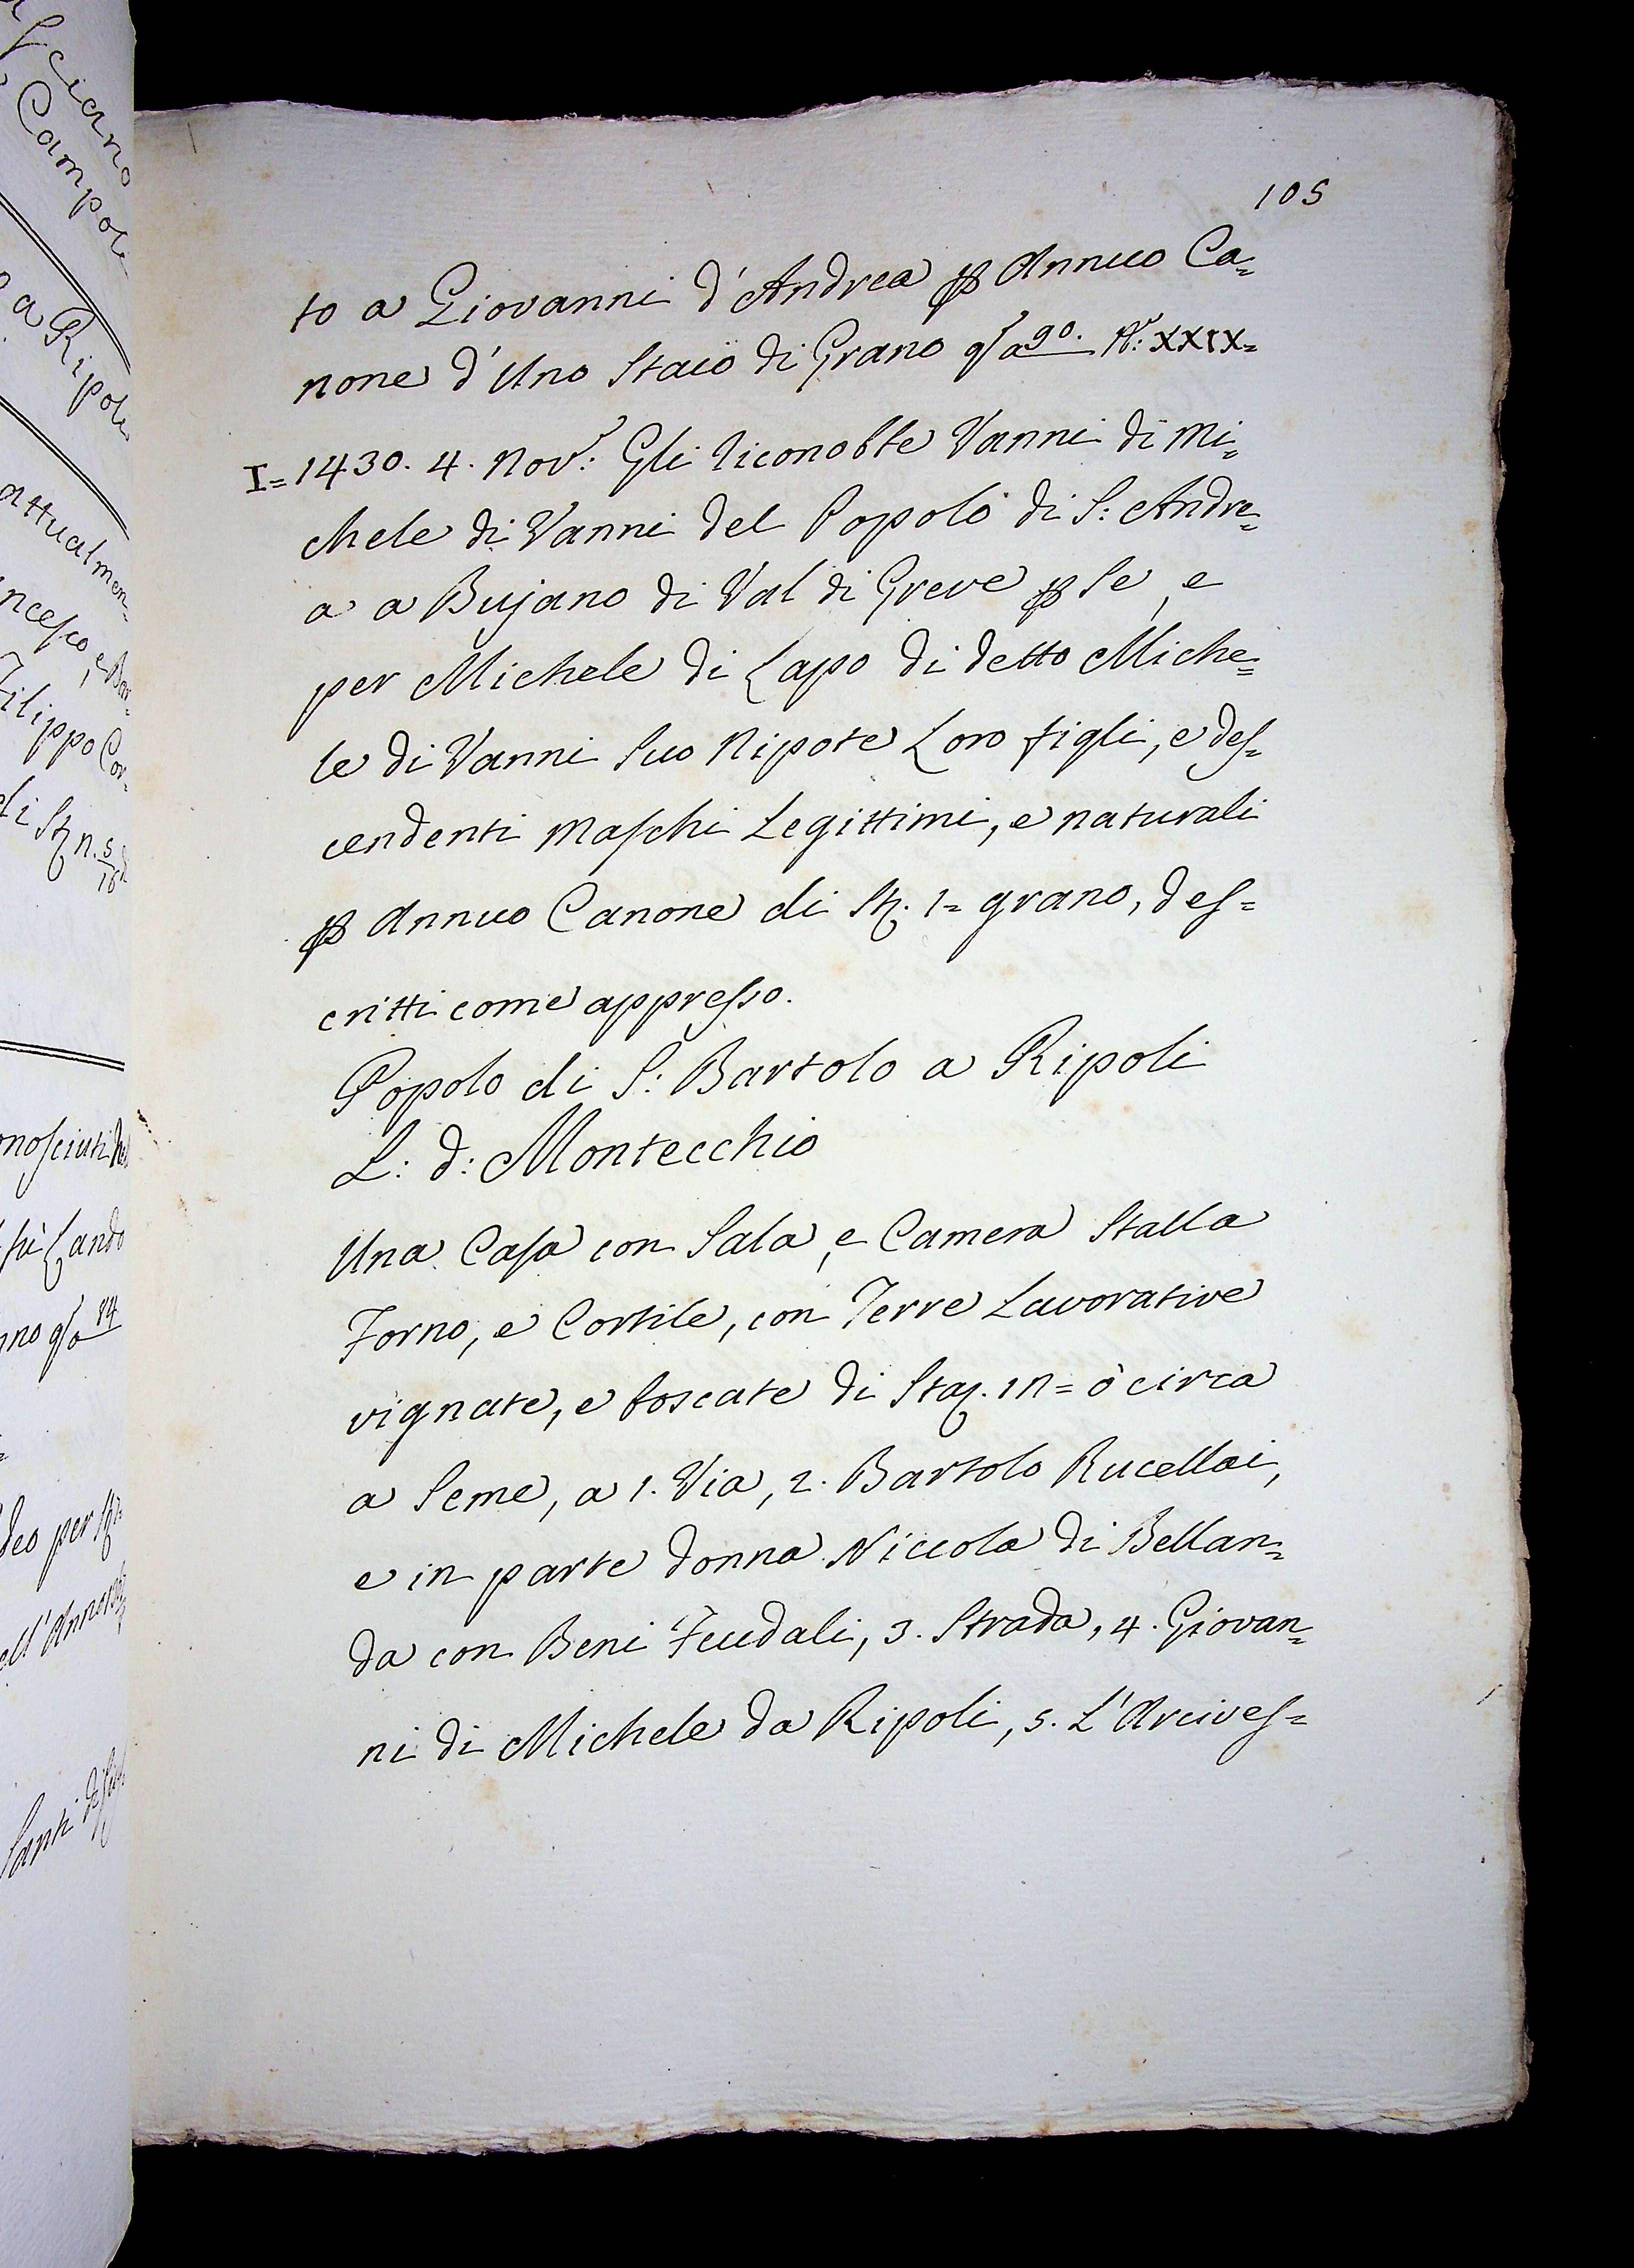 105
to a Giovanni d'Andrea ꝑ Annuo Ca=
none d'Uno Staio di Grano q͞sa 90. N: XXIX=
I= 1430. 4. Nov: Gli riconobbe Vanni di Mi=
chele di Vanni del Popolo di S: Andre=
a a Bujano di Val di Greve ꝑ Se, e
per Michele di Lapo di detto Miche=
le di Vanni Suo Nipote Loro figli, e des=
cendenti Maschi Legittimi, e naturali
ꝑ Annuo Canone di St. 1= grano, des=
critti come appresso.
Popolo di S: Bartolo a Ripoli
L: d: Montecchio
Una Casa con Sala, e Camera Stalla
Forno, e Cortile, con Terre Lavorative
vignate, e boscate di Stai. 17= ò circa
a Seme, a 1. Via, 2. Bartolo Rucellai,
e in parte Donna Niccola di Bellan=
da con Beni Feudali, 3. Strada, 4. Giovan=
ni di Michele da Ripoli, 5. L'Arcives=